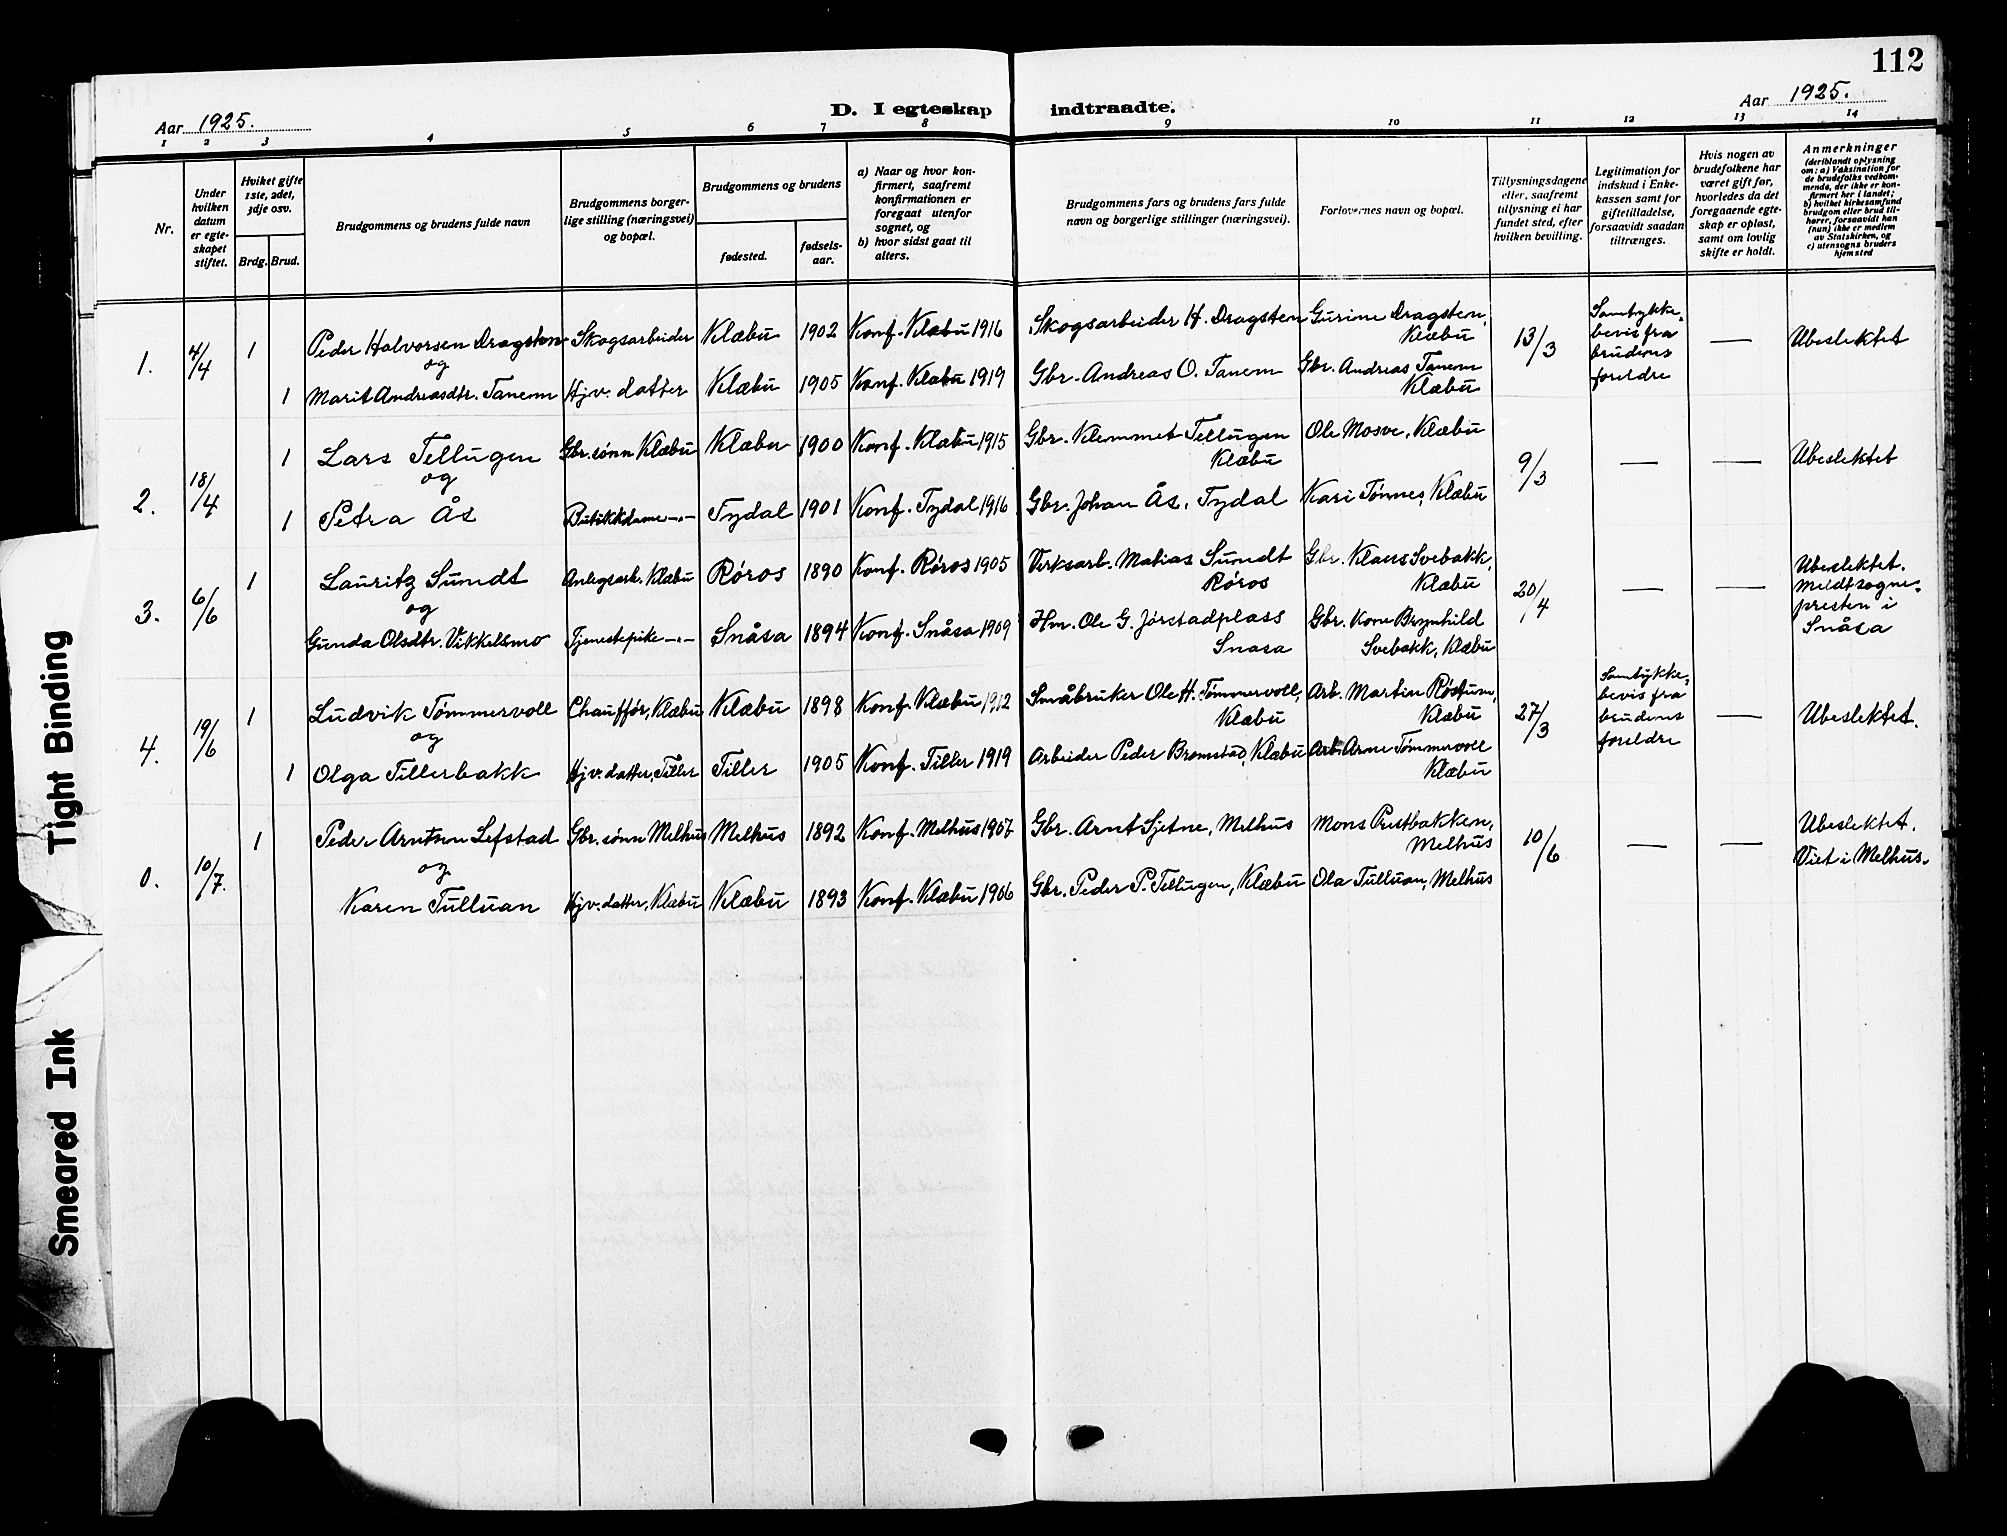 112
Aar 1925.
D. I egteskap indtraadte.
Aar 1925.
1 2 3 4 5 6 7 8 9 10 11 12 13 14
Nr.
Under hvilken datum er egteskapet stiftet.
Hviket gifte 1ste, 2det, 3dje osv.
Brdg. Brud.
Brudgommens og brudens fulde navn
Brudgommens borgerlige stilling (næringsvei) og bopæl.
Brudgommens og brudens
fødested.
fødselsaar.
a) Naar og hvor konfirmert, saafremt konfirmationen er foregaat utenfor sognet, og
b) hvor sidst gaat til alters.
Brudgommens fars og brudens fars fulde navn og borgerlige stillinger (næringsvei).
Forlovernes navn og bopæl.
Tillysningsdagene eller, saafremt tillysning ei har fundet sted, efter hvilken bevilling.
Legitimation for indskud i Enkekassen samt for giftetilladelse, forsaavidt saadan tiltrænges.
Hvis nogen av brudefolkene har været gift før, hvorledes da det foregaaende egteskap er opløst, samt om lovlig skifte er holdt.
Anmerkninger
(deriblandt oplysning om: a) Vaksination for de brudefolks vedkommende, der ikke er konfirmert her i landet; b) hvilket kirkesamfund brudgom eller brud tilhører, forsaavidt han (hun) ikke er medlem av Statskirken, og c) utensogns bruders hjemsted
1. 4/4 1 Peder Halvorsen Dragsten Skogsarbeider Klæbu 1902 Konf. Klæbu 1916 Skogsarbeider H. Dragsten Gurine Dragsten, Klæbu 13/3 Samtykkebevis fra brudens foreldre — Ubeslektet
og
1 Marit Andreasdtr. Tanem Hjv. datter Klæbu 1905 Konf. Klæbu 1919 Gbr. Andreas O. Tanem Gbr. Andreas Tanem Klæbu
2. 18/4 1 Lars Tellugen Gbr. sønn Klæbu Klæbu 1900 Konf. Klæbu 1915 Gbr. Klemmet Tellugen Klæbu Ole Mosve, Klæbu 9/3 — — Ubeslektet
og
1 Petra Ås Butikkdame -"- Tydal 1901 Konf. Tydal 1916 Gbr. Johan Ås, Tydal Kari Tønnes, Klæbu
3. 6/6 1 Lauritz Sundt Anlegsarb. Klæbu Røros 1890 Konf. Røros 1905 Virksarb. Matias Sundt Røros Gbr. Klaus Svebakk, Klæbu 20/4 — — Ubeslektet. Meldt sognepresten i Snåsa
og
Gunda Olsdtr. Vikkelsmo Tjenestepike -"- Snåsa 1894 Konf. Snåsa 1909 Hm. Ole G. Jørstadplass Snasa Gbr. Kone Brynhild Svebakk, Klæbu
4. 19/6 1 Ludvik Tømmervoll Chauffør, Klæbu Klæbu 1898 Konf. Klæbu 1912 Småbruker Ole H. Tømmervoll, Klæbu Arb. Martin Røstum, Klæbu 27/3 Samtykkebevis fra brudens foreldre — Ubeslektet.
og
1 Olga Tillerbakk Hjv. datter, Tiller Tiller 1905 Konf. Tiller 1919 Arbeider Peder Bromstad, Klæbu Arb. Arne Tømmervoll Klæbu
0. 10/7. 1 Peder Arntsen Lefstad Gbr. sønn Melhus Melhus 1892 Konf. Melhus 1907 Gbr. Arnt Sjetne, Melhus Mons Prestbakken, Melhus 10/6 — — Ubeslektet. Viet i Melhus.
og
Karen Tulluan Hjv. datter, Klæbu Klæbu 1893 Konf. Klæbu 1906 Gbr. Peder P. Tellugen, Klæbu Ola Tulluan, Melhus
Tight Binding
Smeared Ink